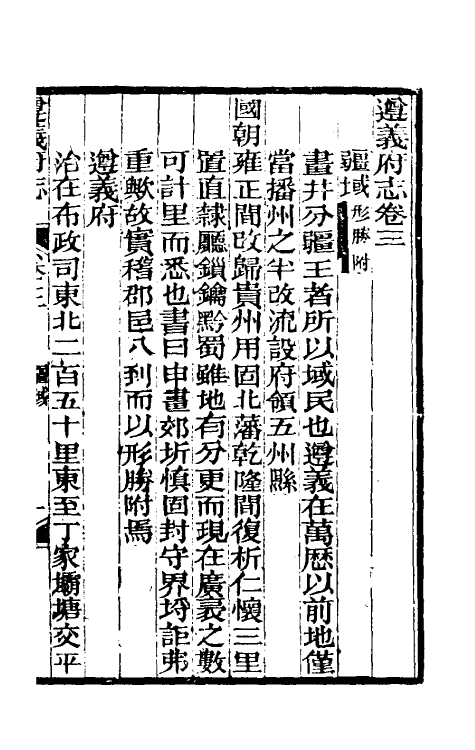 遵義府志卷三
疆域形勝附
畫井分疆王者所以域民也遵義在萬歴以前地僅
當播州之半改流設府領五州縣
國朝雍正間改歸貴州用固北藩乾隆間復析仁懷三里
置直隸廳鎖鑰黔蜀雖地有分更而現在廣袤之數
可計里而悉也書曰申畫郊圻慎固封守界埒詎弗
重歟故實稽郡邑八到而以形勝附焉
遵義府
治在布政司東北二百五十里東至丁家壩塘交平
遵義府志
疆域
一